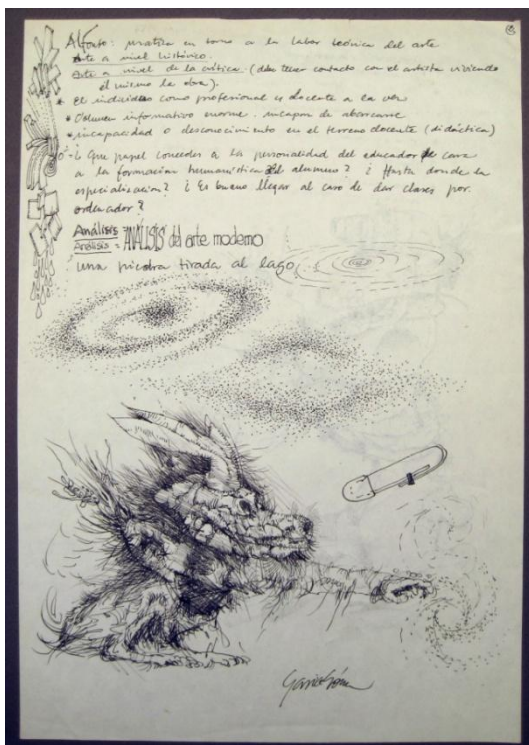 Alfonso: práctica en torno a la labor teórica del arte
Arte a nivel histórico.
Arte a nivel de la crítica. (debe tener contacto con el artista viviendo
él mismo la obra).
* El individuo como profesional es docente a la vez
* Volumen informativo enorme. incapaz de abarcarse
* incapacidad o desconocimiento en el terreno docente (didáctica)
- ¿Que papel concedes a la personalidad del educador de cara
a la formación humanística del alumno? ¿Hasta donde la
especialización? ¿Es bueno llegar al caso de dar clases por
ordenador?
Análisis ANÁLISIS del arte moderno
Análisis =
una piedra tirada al lago